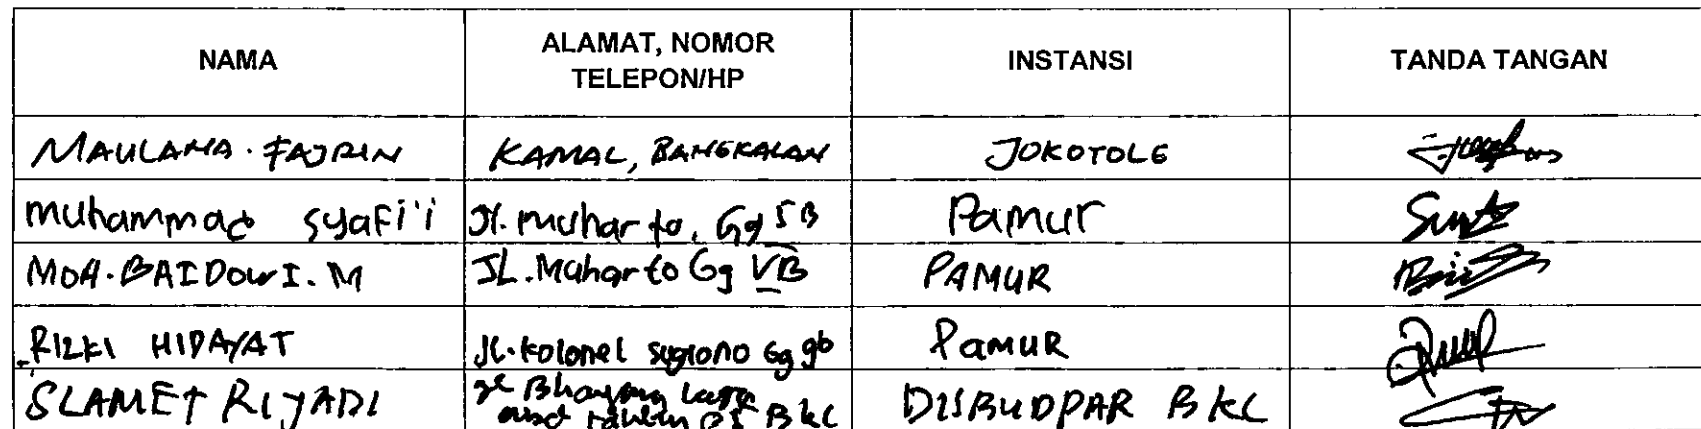 NAMA ALAMAT, NOMOR TELEPON/HP INSTANSI TANDA TANGAN
MAULANA. FAJRIN KAMAL, BANGKALAN JOKOTOLE
muhammad syafi'i Jl. muharto. Gg 5B Pamur
MOH. BAIDOWI. M JL. Muharto Gg VB PAMUR
RIZKI HIDAYAT Jl. kolonel sugiono Gg 9b PamuR
SLAMET RIYADI Bhayang BKL DISBUDPAR BKL